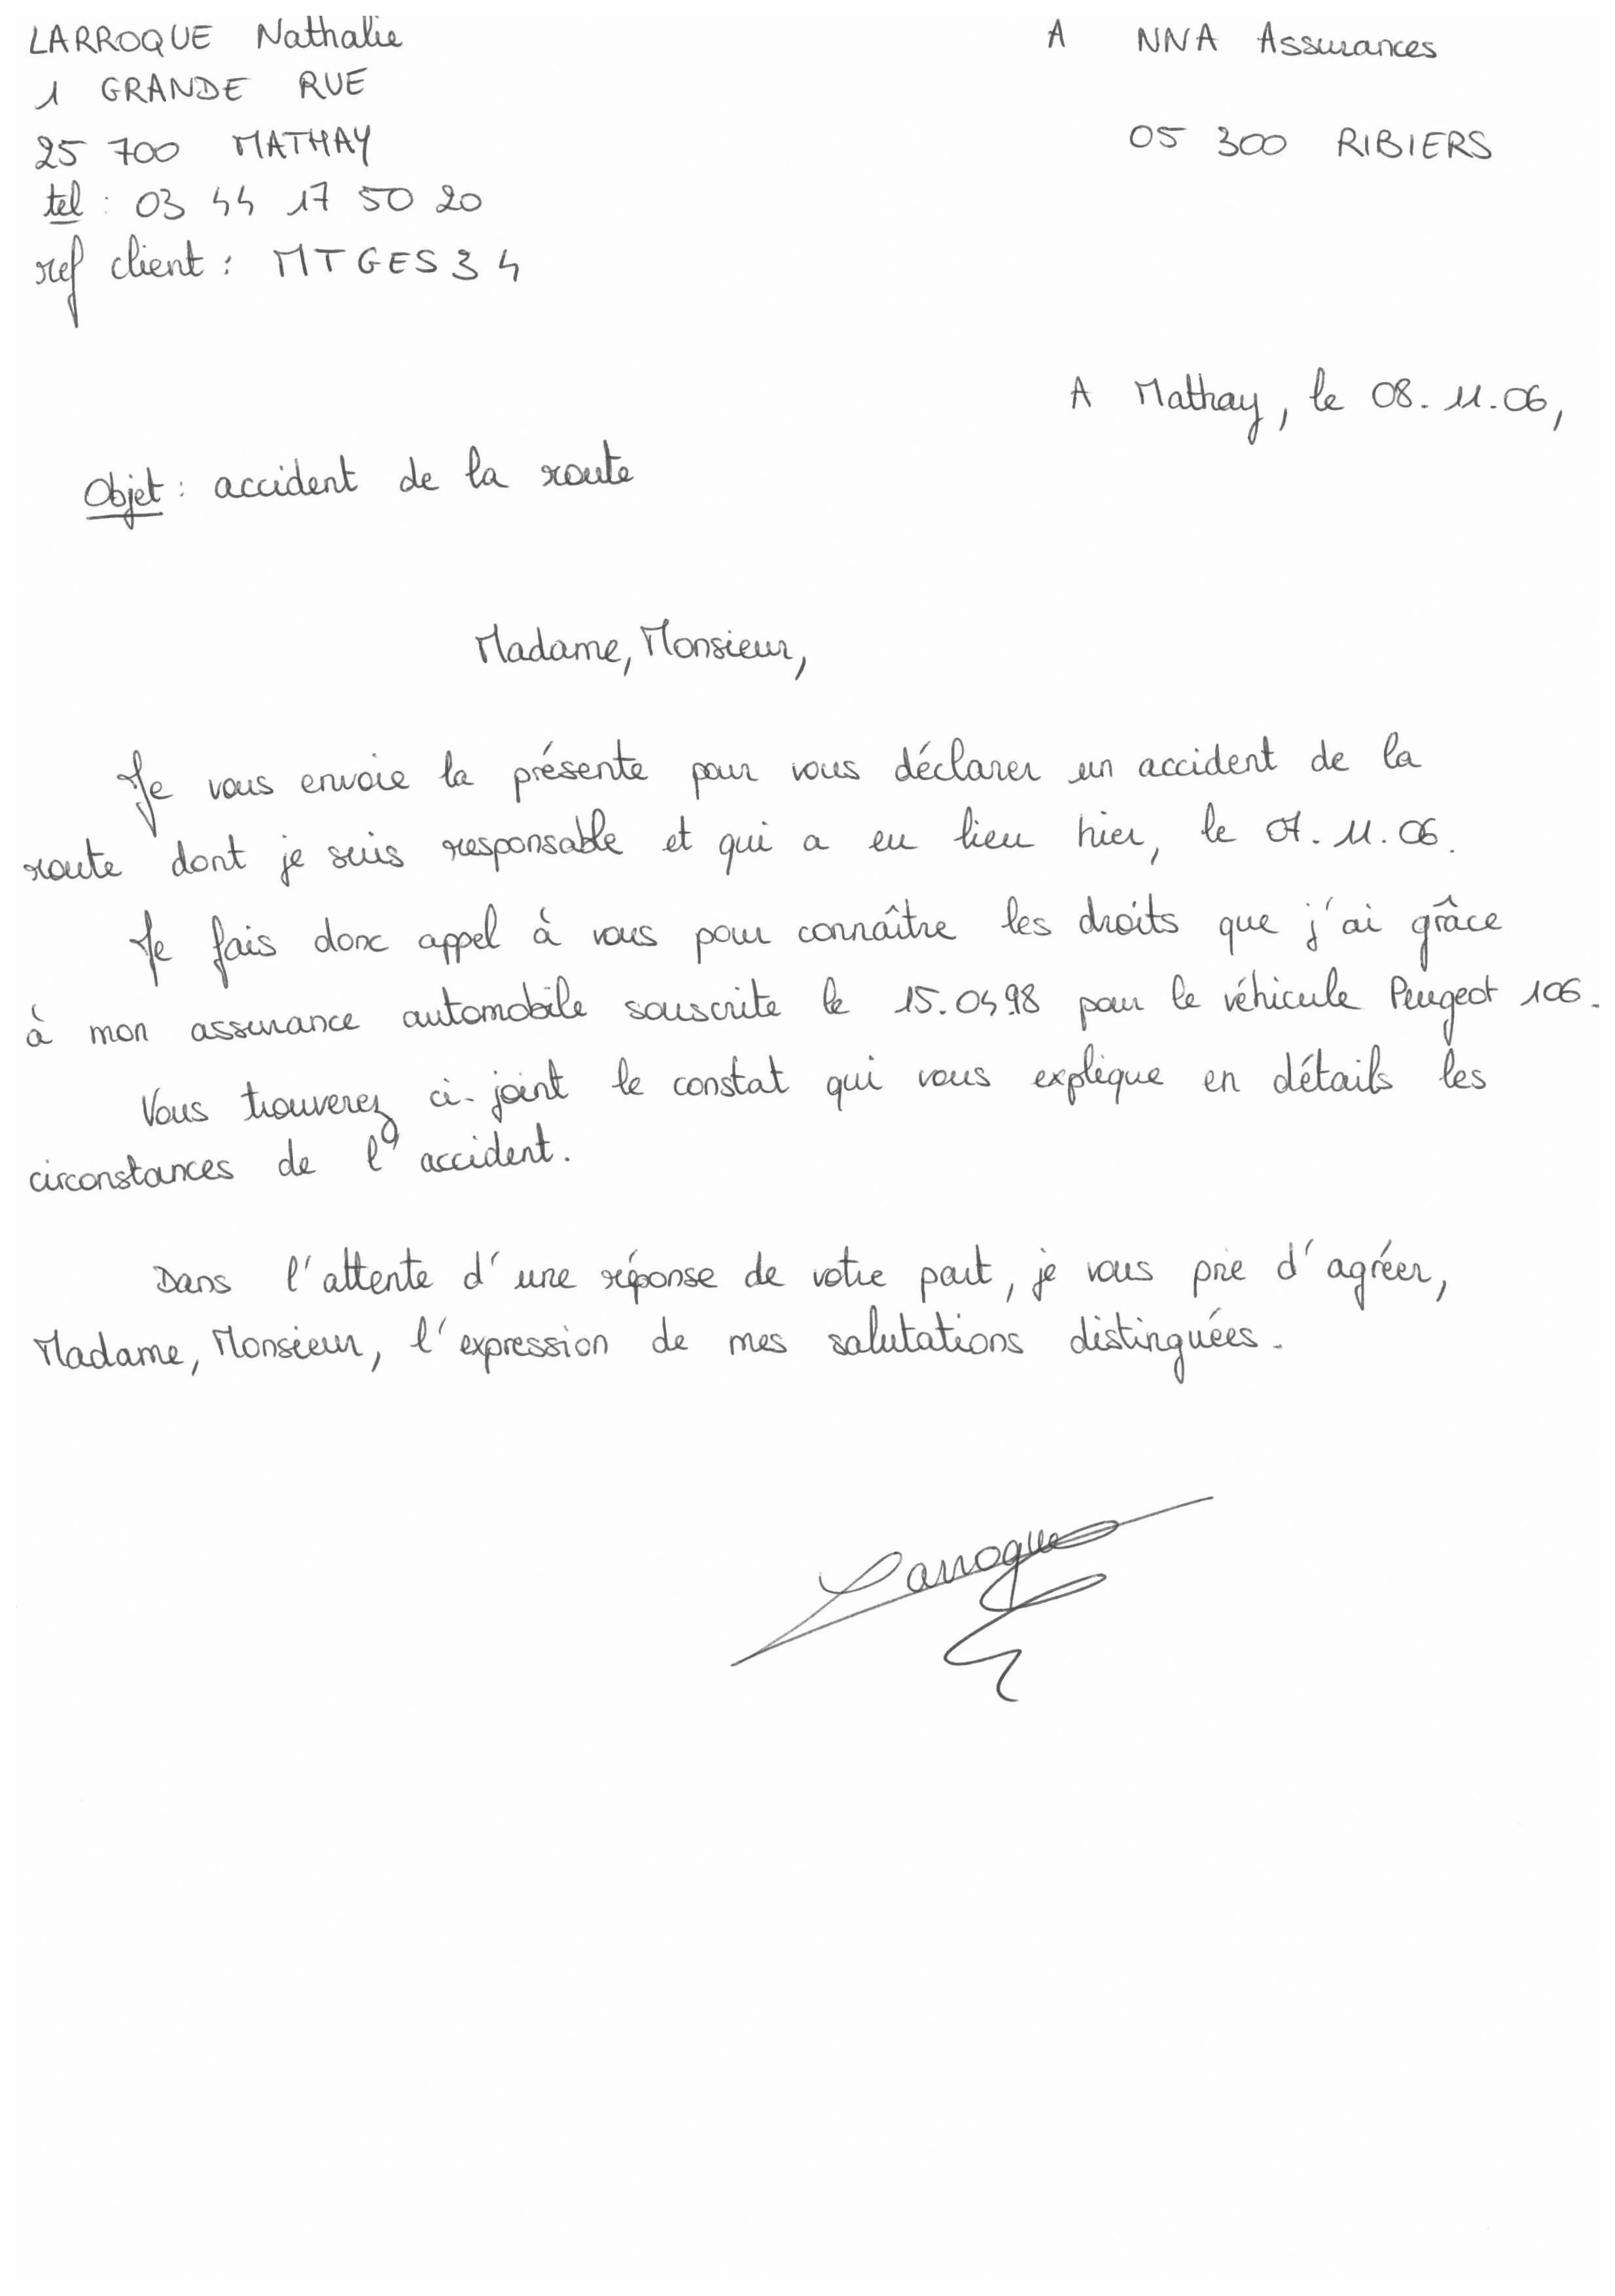 LARROQUE Nathalie
1 GRANDE RUE
25 700 MATHAY
tel : 03 44 17 50 20
ref client : MTGES34
A NNA Assurances
05 300 RIBIERS
A Mathay, le 08.11.06,
Objet : accident de la route
Madame, Monsieur,
Je vous envoie la présente pour vous déclarer un accident de la
route dont je suis responsable et qui a eu lieu hier, le 07.11.06.
Je fais donc appel à vous pour connaître les droits que j'ai grâce
à mon assurance automobile souscrite le 15.04.98 pour le véhicule Peugeot 106.
Vous trouverez ci-joint le constat qui vous explique en détails les
circonstances de l'accident.
Dans l'attente d'une réponse de votre part, je vous prie d'agréer,
Madame, Monsieur, l'expression de mes salutations distinguées.
Larroque